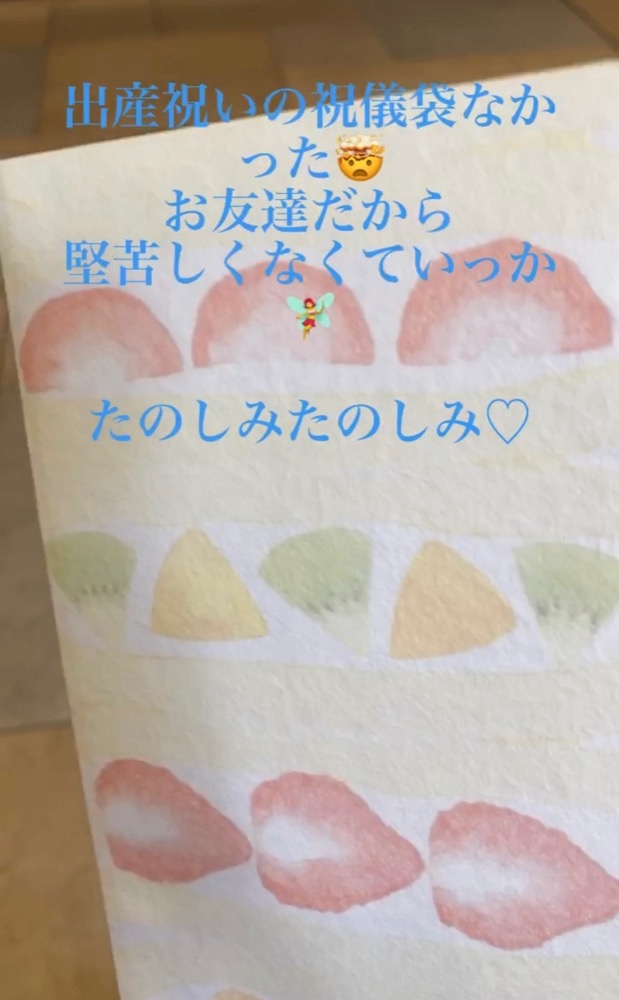 出産祝いの祝儀袋なか
った🤯
お友達だから
堅苦しくなくていっか
🧚‍♀️
たのしみたのしみ♡